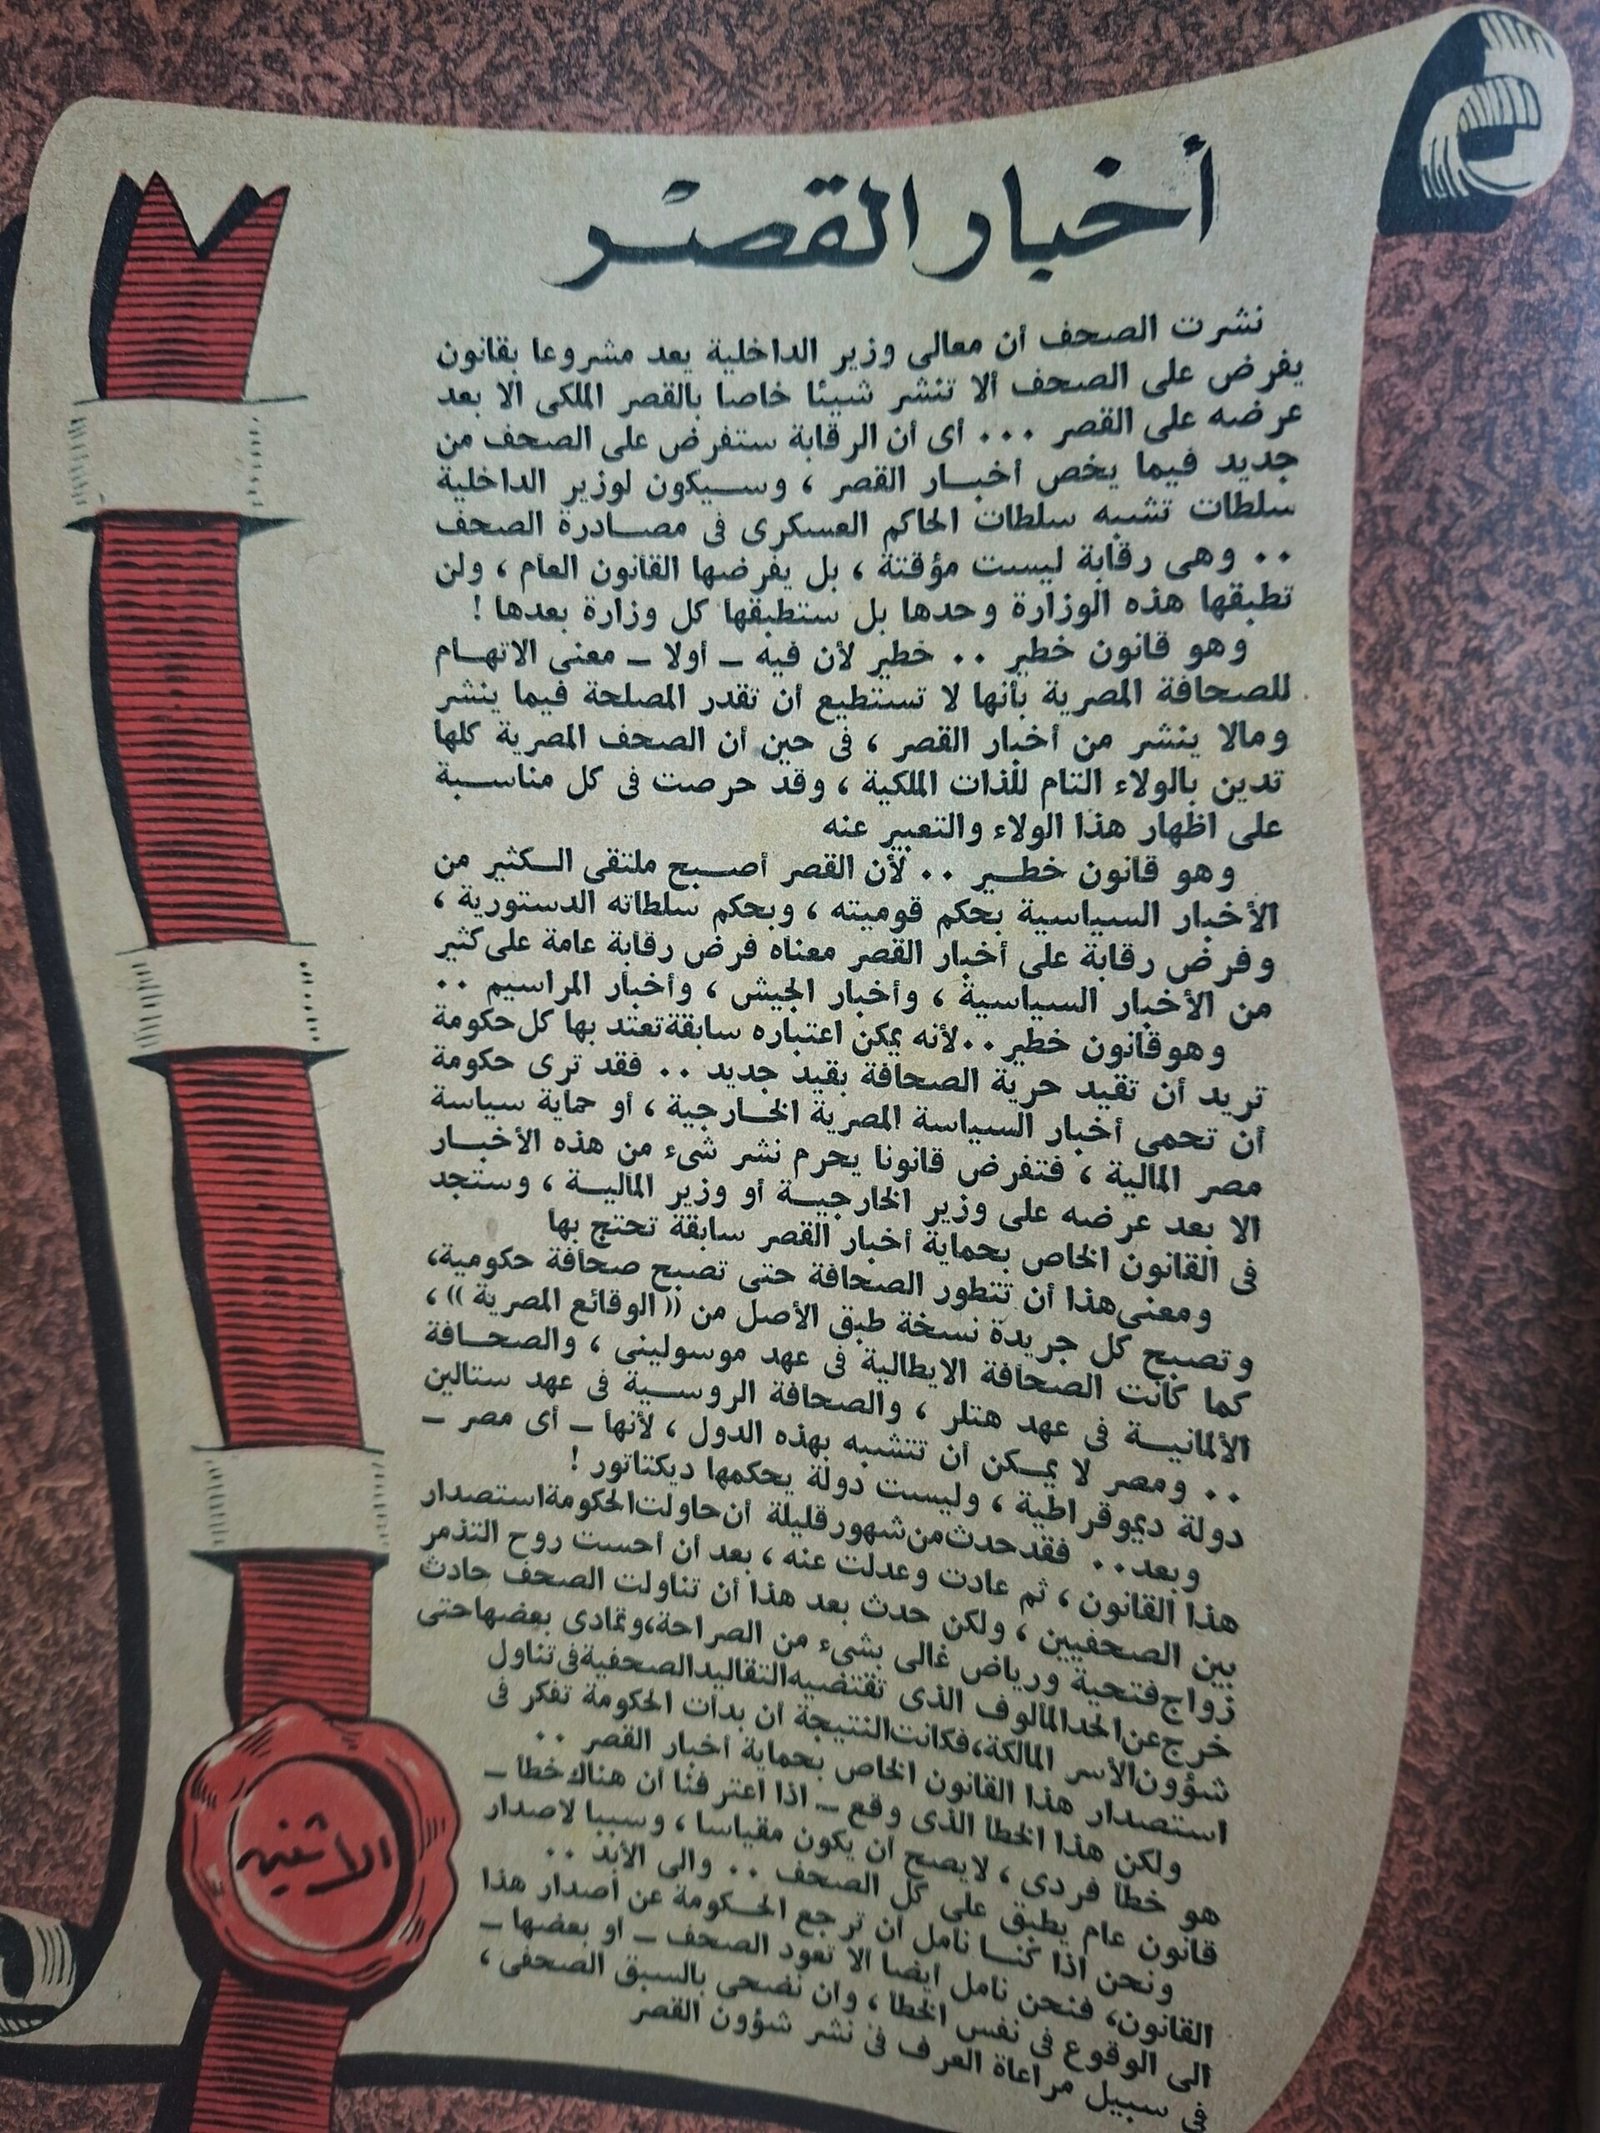 أخبار القصر
نشرت الصحف أن معالى وزير الداخلية يعد مشروعا بقانون
يفرض على الصحف ألا تنشر شيئا خاصا بالقصر الملكى الا بعد
عرضه على القصر ... أى أن الرقابة ستفرض على الصحف من
جديد فيما يخص أخبار القصر ، وسيكون لوزير الداخلية
سلطات تشبه سلطات الحاكم العسكرى فى مصادرة الصحف
.. وهى رقابة ليست مؤقتة ، بل يفرضها القانون العام ، ولن
تطبقها هذه الوزارة وحدها بل ستطبقها كل وزارة بعدها !
وهو قانون خطير .. خطير لأن فيه - أولا - معنى الاتهام
للصحافة المصرية بأنها لا تستطيع أن تقدر المصلحة فيما ينشر
ومالا ينشر من أخبار القصر ، فى حين أن الصحف المصرية كلها
تدين بالولاء التام للذات الملكية ، وقد حرصت فى كل مناسبة
على اظهار هذا الولاء والتعبير عنه
وهو قانون خطير .. لأن القصر أصبح ملتقى الكثير من
الأخبار السياسية بحكم قوميته ، وبحكم سلطاته الدستورية ،
وفرض رقابة على أخبار القصر معناه فرض رقابة عامة على كثير
من الأخبار السياسية ، وأخبار الجيش ، وأخبار المراسيم ..
وهو قانون خطير .. لأنه يمكن اعتباره سابقة تعتد بها كل حكومة
تريد أن تقيد حرية الصحافة بقيد جديد .. فقد ترى حكومة
أن تحمى أخبار السياسة المصرية الخارجية ، أو حماية سياسة
مصر المالية ، فتفرض قانونا يحرم نشر شىء من هذه الأخبار
الا بعد عرضه على وزير الخارجية أو وزير المالية ، وستجد
فى القانون الخاص بحماية أخبار القصر سابقة تحتج بها
ومعنى هذا أن تتطور الصحافة حتى تصبح صحافة حكومية،
وتصبح كل جريدة نسخة طبق الأصل من (( الوقائع المصرية )) ،
كما كانت الصحافة الايطالية فى عهد موسولينى ، والصحافة
الألمانية فى عهد هتلر ، والصحافة الروسية فى عهد ستالين
.. ومصر لا يمكن أن تتشبه بهذه الدول ، لأنها - أى مصر -
دولة ديموقراطية ، وليست دولة يحكمها ديكتاتور !
وبعد .. فقد حدث من شهور قليلة أن حاولت الحكومة استصدار
هذا القانون ، ثم عادت وعدلت عنه ، بعد أن أحست روح التذمر
بين الصحفيين ، ولكن حدث بعد هذا أن تناولت الصحف حادث
زواج فتحية ورياض غالى بشىء من الصراحة، وتمادى بعضها حتى
خرج عن الحد المألوف الذى تقتضيه التقاليد الصحفية فى تناول
شؤون الأسر المالكة، فكانت النتيجة أن بدأت الحكومة تفكر فى
استصدار هذا القانون الخاص بحماية أخبار القصر ..
ولكن هذا الخطأ الذى وقع - اذا اعترفنا أن هناك خطأ -
هو خطأ فردى ، لايصح أن يكون مقياسا ، وسببا لاصدار
قانون عام يطبق على كل الصحف .. والى الأبد ..
ونحن اذا كنا نأمل أن ترجع الحكومة عن اصدار هذا
القانون، فنحن نأمل أيضا ألا تعود الصحف - أو بعضها -
الى الوقوع فى نفس الخطأ ، وان نضحى بالسبق الصحفى ،
فى سبيل مراعاة العرف فى نشر شؤون القصر
الاثنين